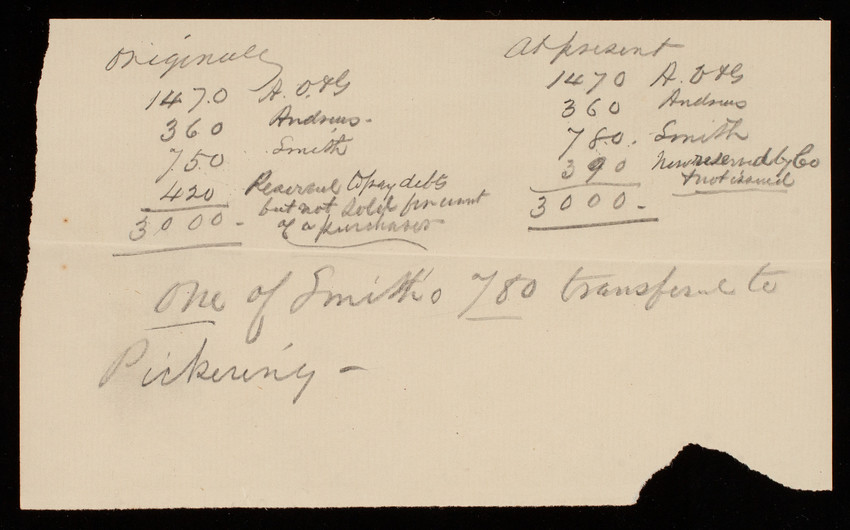 Originally
1470 A. V & G
360 Andrews -
750 Smith
420 Reserved to pay debts
but not sold for want
of a purchaser
3000 -
At present
1470 A. V & G
360 Andrews
780. Smith
390 Now reserved by Co
& not issued
3000 -
One of Smith's 780 transferred to
Pickering -